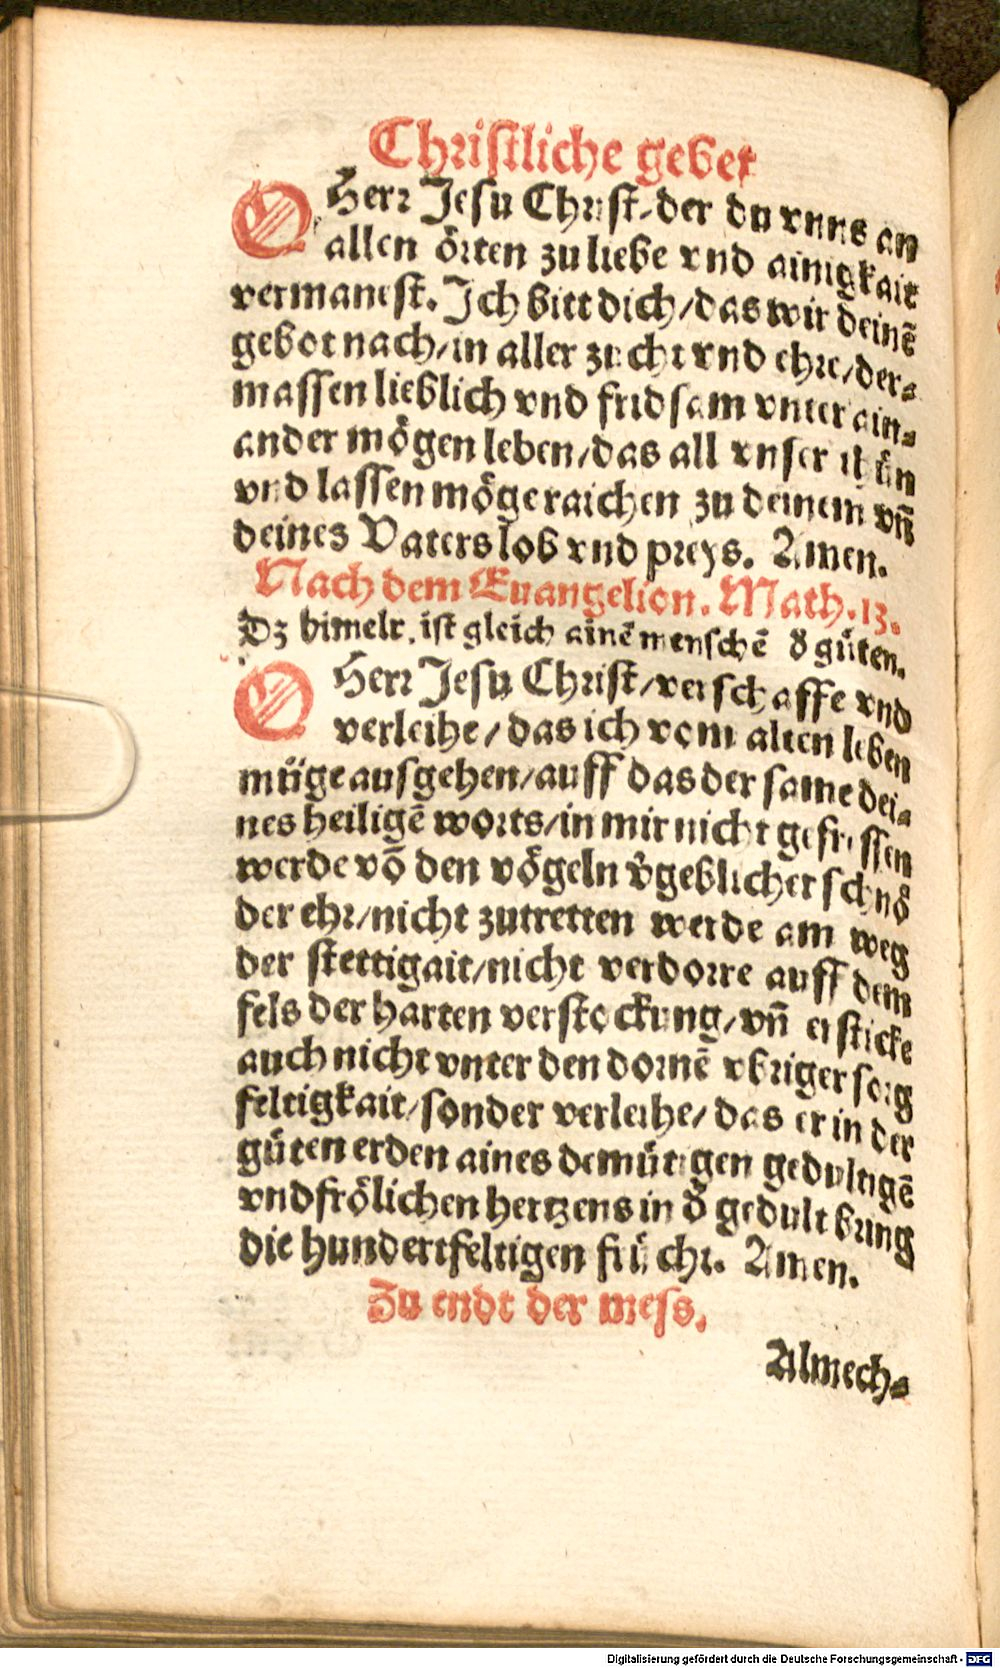 Christliche gebet
O Herr Jesu Christ, der du vnns an
allen örten zu liebe vnd ainigkait
vermanest. Ich bitt dich/das wir deinẽ
gebot nach/in aller zucht vnd ehre/der-
massen lieblich vnd fridsam vnter ain-
ander mögen leben/das all vnser thůn
vnd lassen möge raichen zu deinem vñ
deines Vaters lob vnd preys. Amen.
Nach dem Euangelion. Math. 13.
Dz himelr. ist gleich ainẽ menschẽ d̓ gůten.
O Herr Jesu Christ/verschaffe vnd
verleihe/das ich vom alten leben
müge ausgehen/auff das der same dei-
nes heiligẽ worts/in mir nicht gefressen
werde võ den vögeln v̓geblicher schnö
der ehr/nicht zutretten werde am weg
der stettigait/nicht verdorre auff dem
fels der harten verstockung/vñ ersticke
auch nicht vnter den dornẽ vbriger sorg
feltigkait/sonder verleihe/das er in der
gůten erden aines demütigen gedultigẽ
vnd frölichen hertzens in d̓ gedult bring
die hundertfeltigen frücht. Amen.
Zu endt der mess.
Almech-
Digitalisierung gefördert durch die Deutsche Forschungsgemeinschaft - DFG